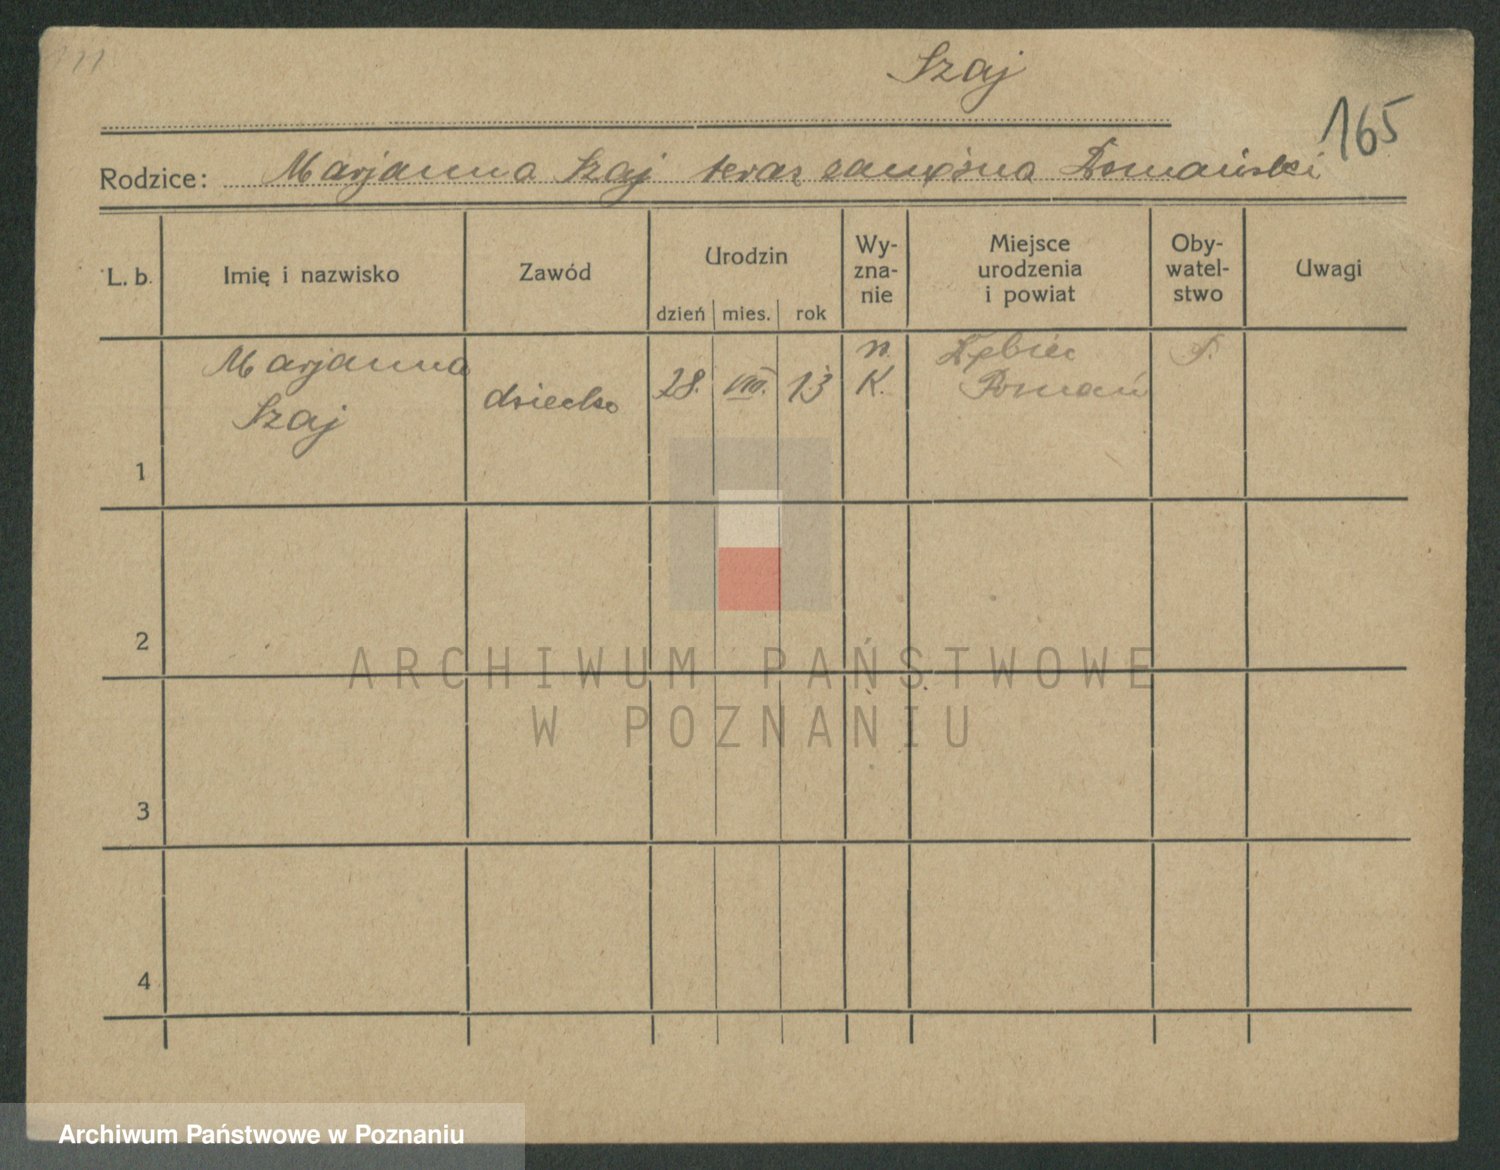 Szaj
165
Rodzice: Marjanna Szaj teraz zamężna Domański
L. b.
Imię i nazwisko
Zawód
Urodzin
dzień mies. rok
Wy-
zna-
nie
Miejsce
urodzenia
i powiat
Oby-
watel-
stwo
Uwagi
1
Marjanna
Szaj
dziecko
28. VIII. 13
r.
K.
Dębiec
Poznań
P.
2
3
4
ARCHIWUM PAŃSTWOWE
W POZNANIU
Archiwum Państwowe w Poznaniu